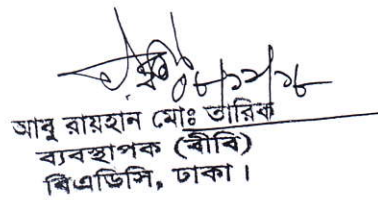 আবু রায়হান মোঃ তারিক
ব্যবস্থাপক (বীবি)
বিএডিসি, ঢাকা।